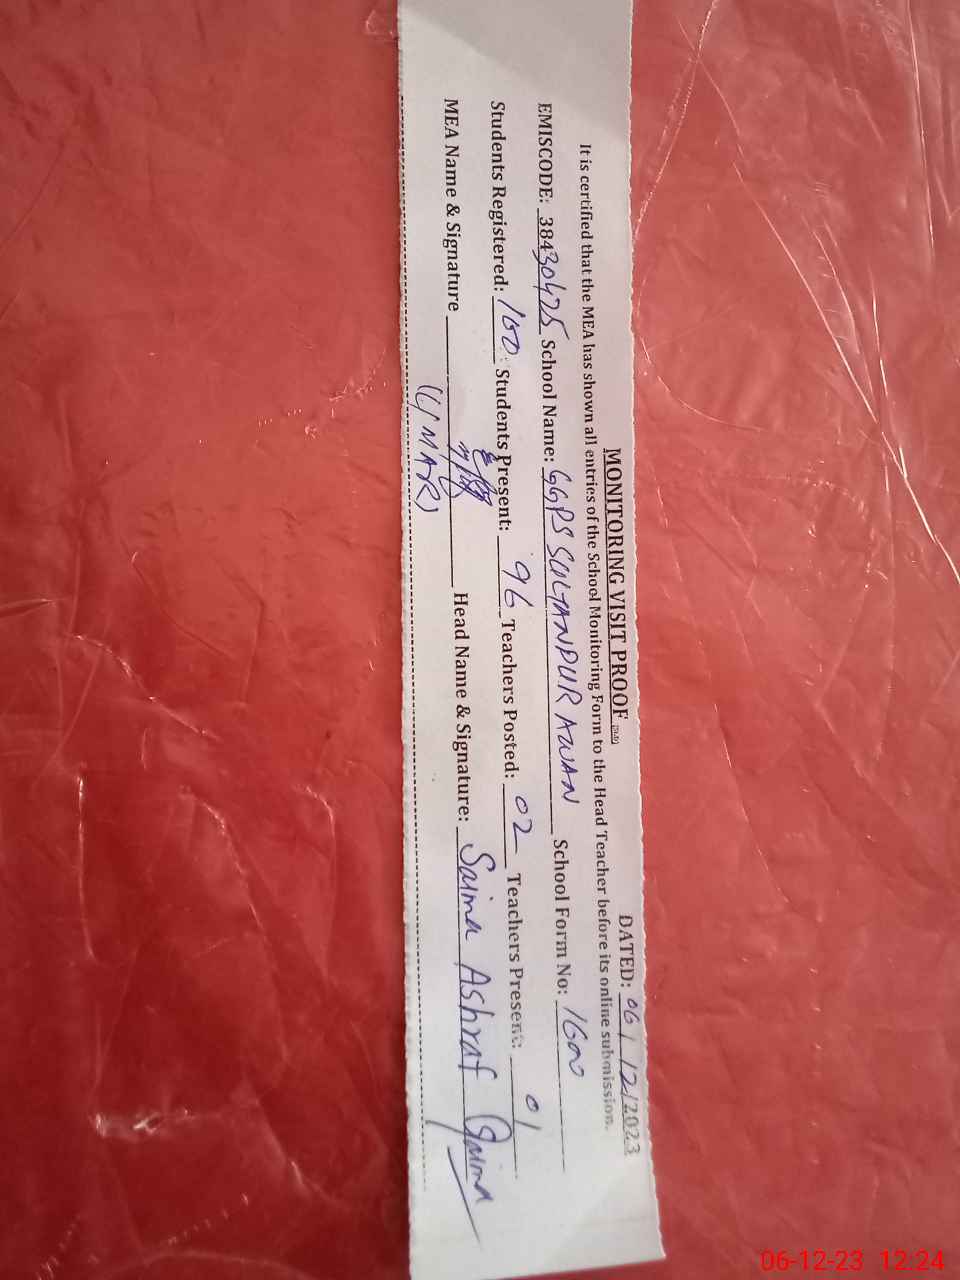 MONITORING VISIT PROOF
DATED: 06/12/2023
It is certified that the MEA has shown all entries of the School Monitoring Form to the Head Teacher before its online submission.
EMISCODE: 38430475 School Name: GGPS SULTANPUR AWAN School Form No: 1600
Students Registered: 100 Students Present: 96 Teachers Posted: 02 Teachers Present: 01
MEA Name & Signature Head Name & Signature: Saima Ashraf Saima
(UMAR)
06-12-23 12:24